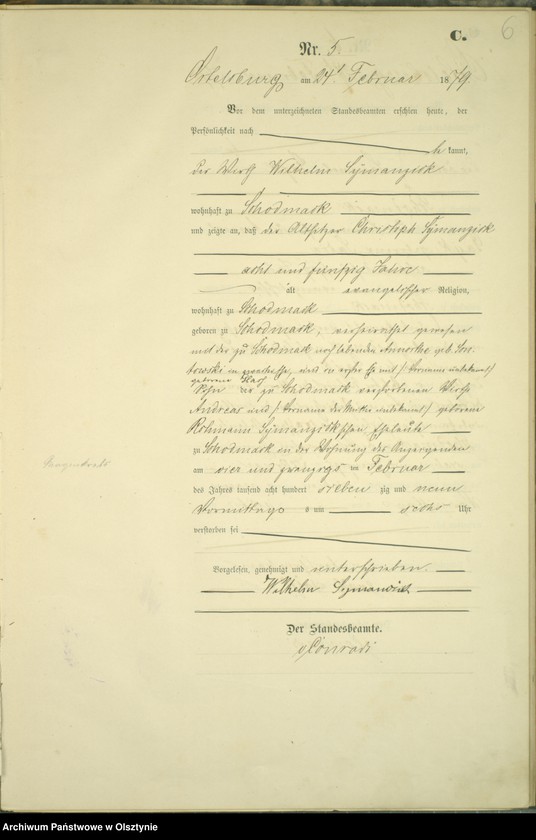 C.
6
Nr. 5
Ortelsburg am 24t Februar 1879.
Vor dem unterzeichneten Standesbeamten erschien heute, der
Persönlichkeit nach
kannt,
der Wirth Wilhelm Symanzik
wohnhaft zu Schodmack
und zeigte an, daß der Altsitzer Christoph Symanzik
acht und fünfzig Jahre
alt evangelischer Religion,
wohnhaft zu Schodmack
geboren zu Schodmack, verheirathet gewesen
mit der zu Schodmack noch lebenden geb.
in zweiter Ehe, und in erster Ehe mit /: Vorname unbekannt:/
geborene
Sohn der zu Schodmack verstorbenen Wirth
Andreas und /: Vorname der Mutter unbekannt:/ geborene
Symanzikschen Eheleute
zu Schodmack in der Wohnung des Anzeigenden
am vier und zwanzigs ten Februar
des Jahres tausend acht hundert sieben zig und neun
Vormittags um sechs Uhr
verstorben sei
Vorgelesen, genehmigt und unterschrieben.
Wilhelm Symanzick
Der Standesbeamte.
Conradi
Archiwum Państwowe w Olsztynie